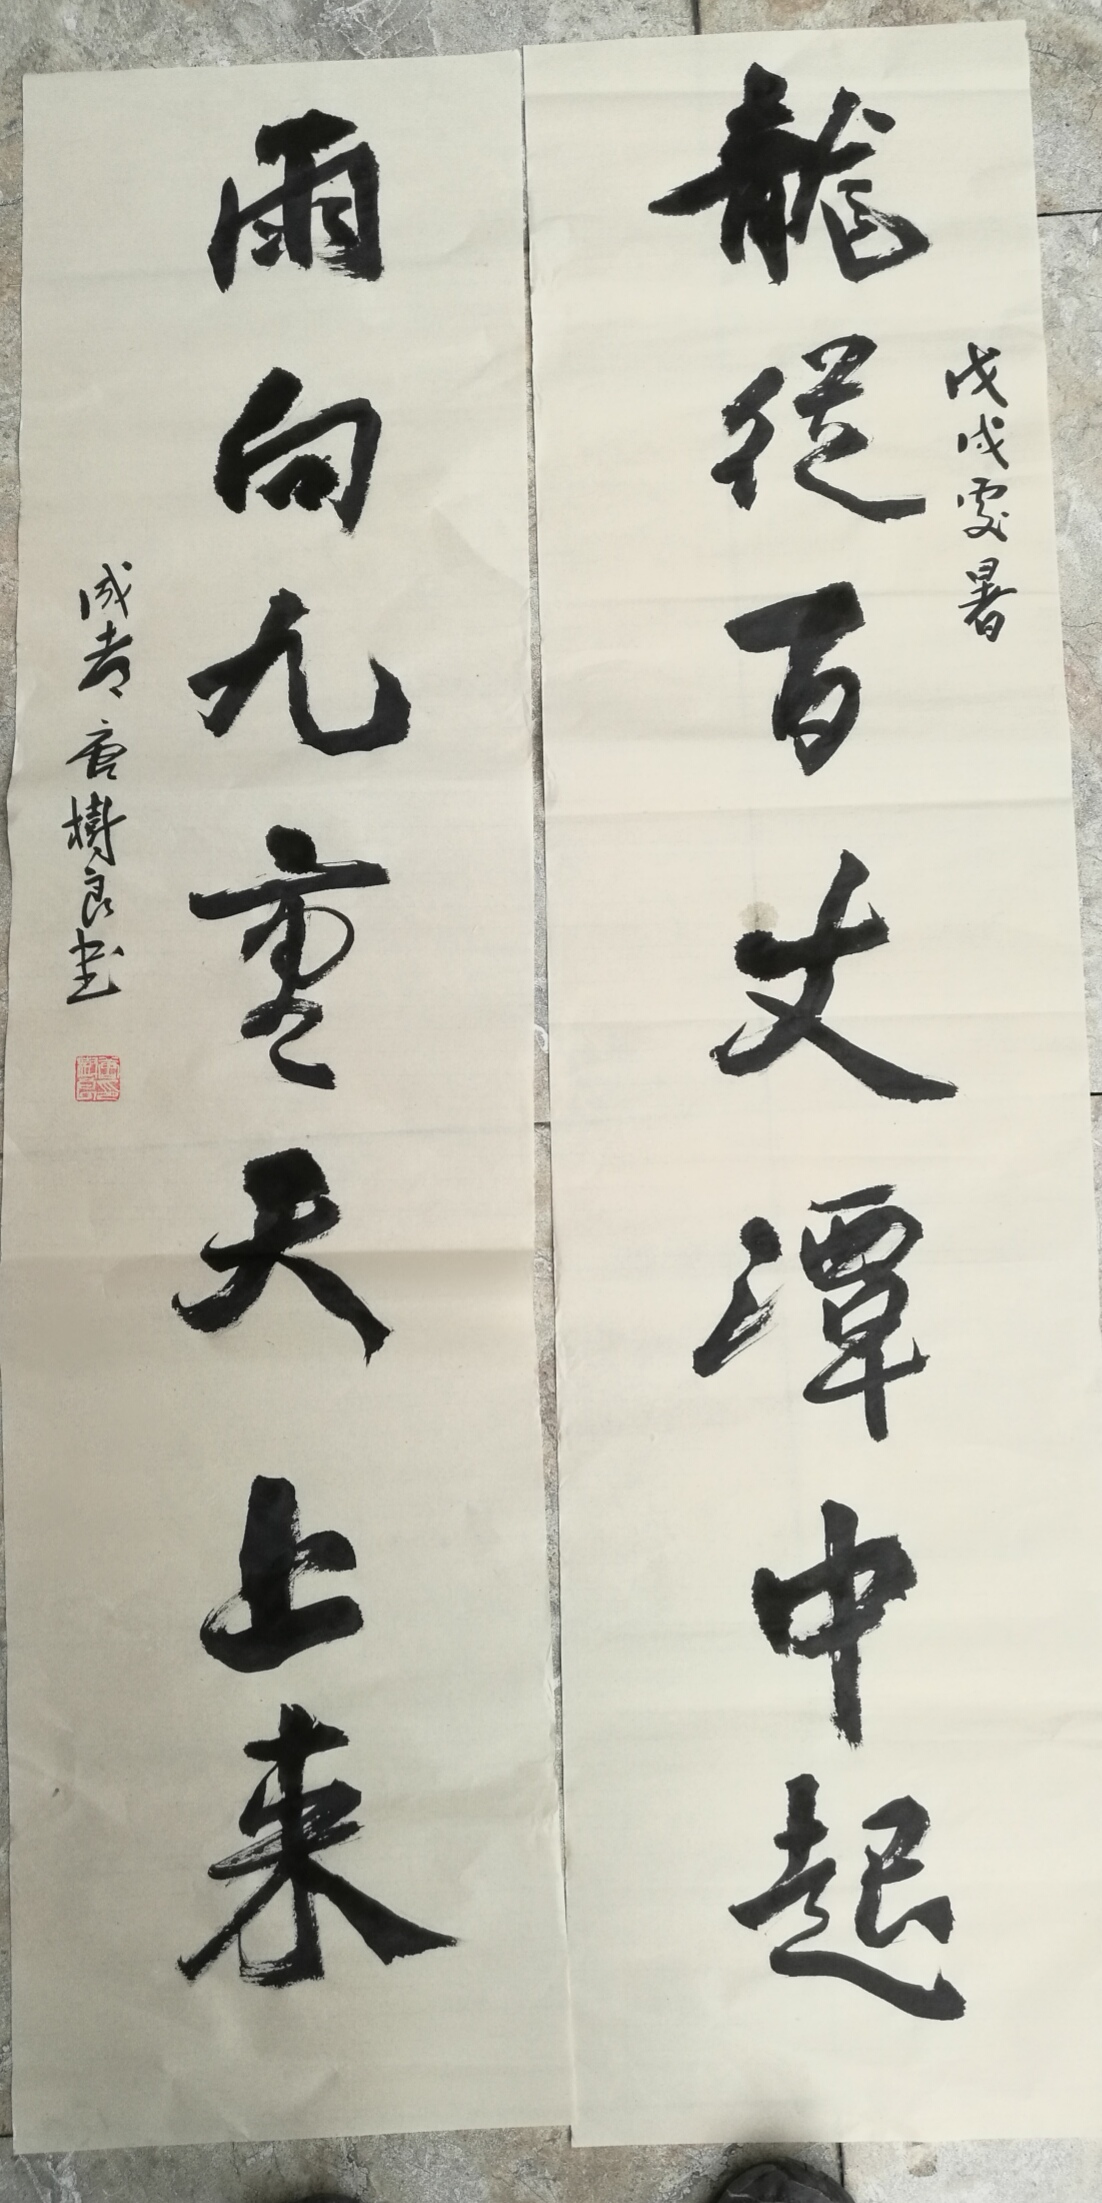 戊戌處暑
龍從百丈潭中起
雨向九重天上來
成都唐樹良書